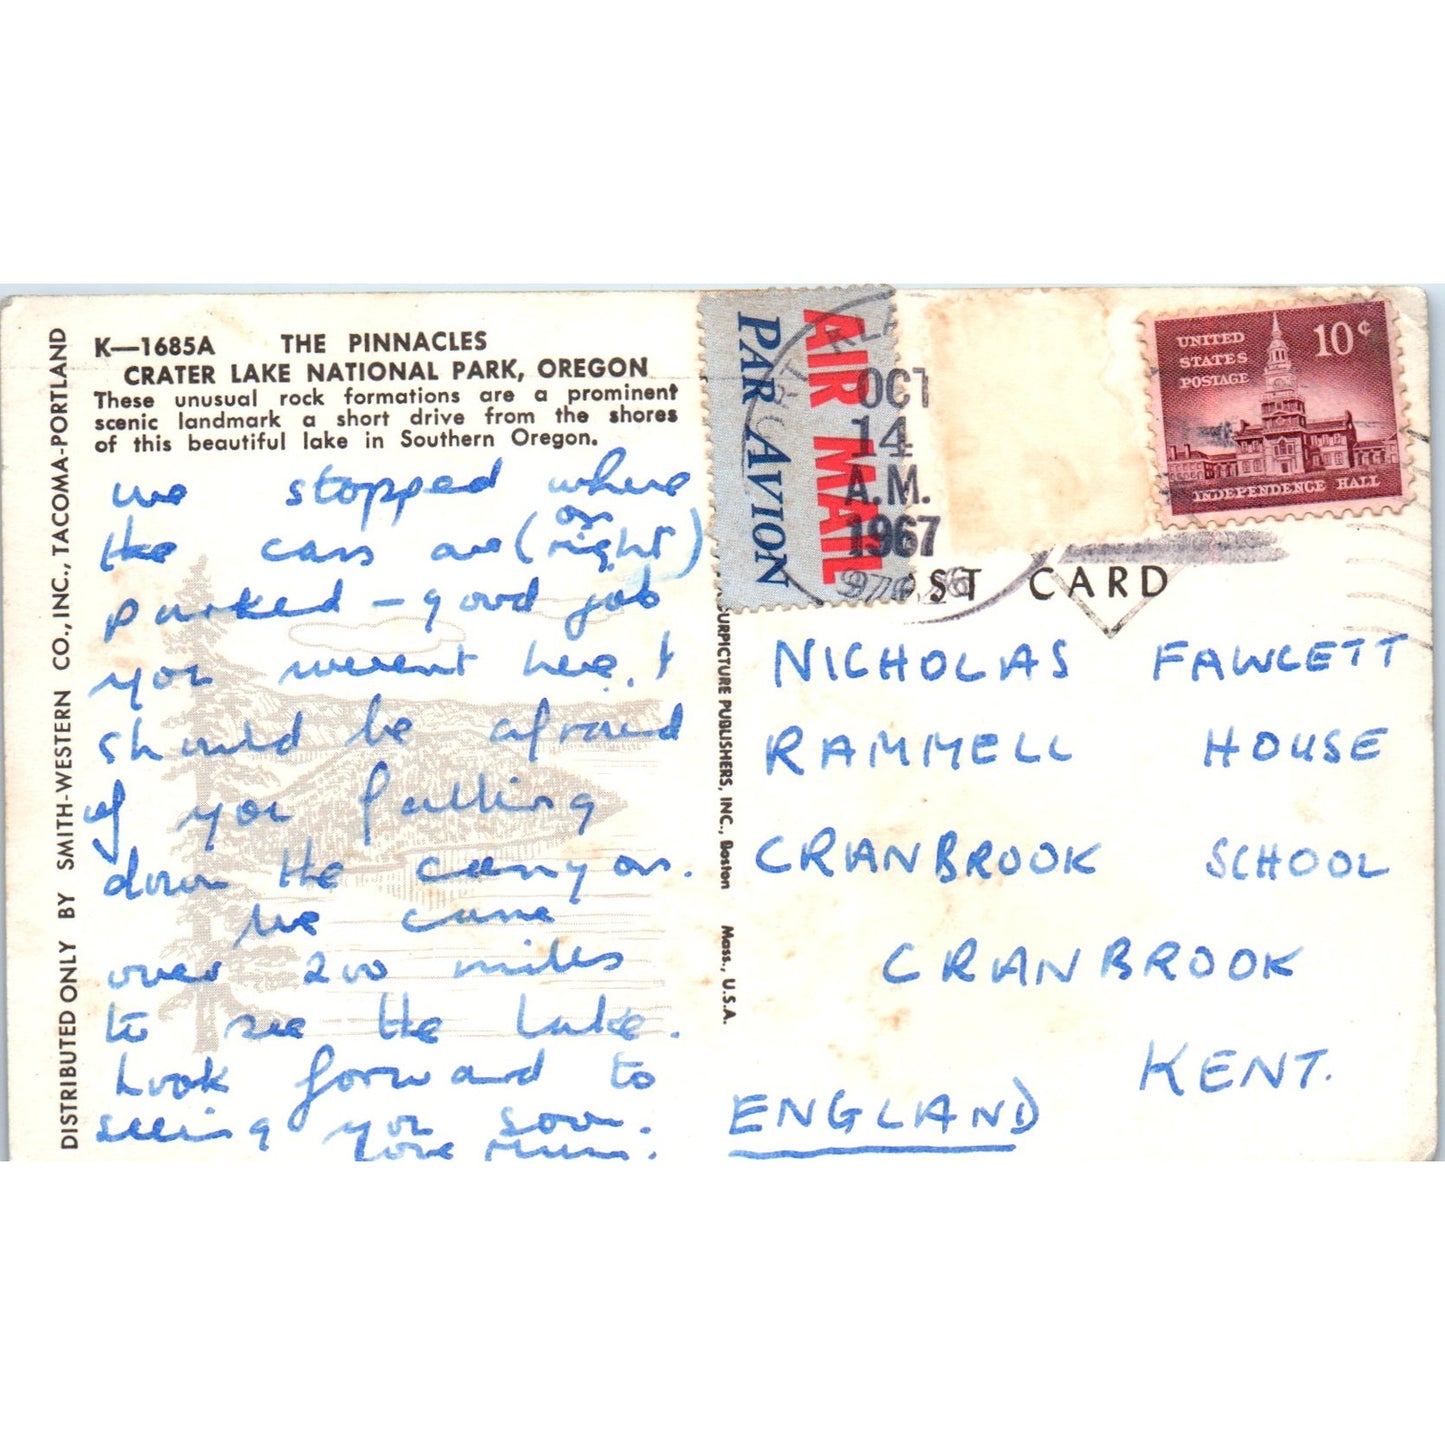 DISTRIBUTED ONLY BY SMITH-WESTERN CO., INC., TACOMA-PORTLAND
K—1685A THE PINNACLES
CRATER LAKE NATIONAL PARK, OREGON
These unusual rock formations are a prominent
scenic landmark a short drive from the shores
of this beautiful lake in Southern Oregon.
we stopped where
the cars are (on right)
parked – good job
you weren't here. I
should be afraid
of you falling
down the canyon.
We came
over 200 miles
to see the lake.
Look forward to
seeing you soon.
Love Mum.
URPICTURE PUBLISHERS, INC., Boston Mass., U.S.A.
PAR AVION
AIR MAIL
OCT
14
A.M.
1967
UNITED
STATES
POSTAGE
10¢
INDEPENDENCE HALL
ST CARD
NICHOLAS FAWCETT
RAMMELL HOUSE
CRANBROOK SCHOOL
CRANBROOK
KENT.
ENGLAND